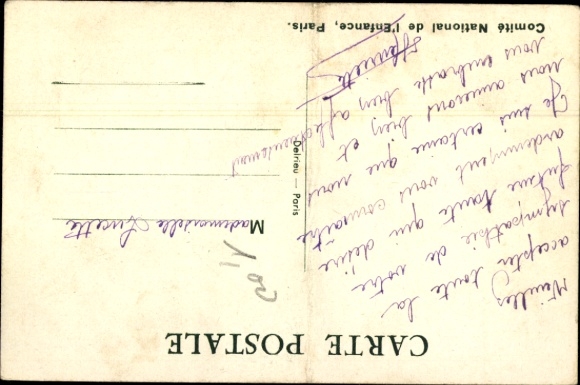 CARTE POSTALE
Veuillez
accepter toute la
sympathie de votre
future tante qui désire
ardemment vous connaître
Je suis certaine que nous
nous aimerons bien et
vous embrasse bien affectueusement
Henriette
Mademoiselle Lucette
20 f
Delrieu — Paris
Comité National de l'Enfance, Paris.